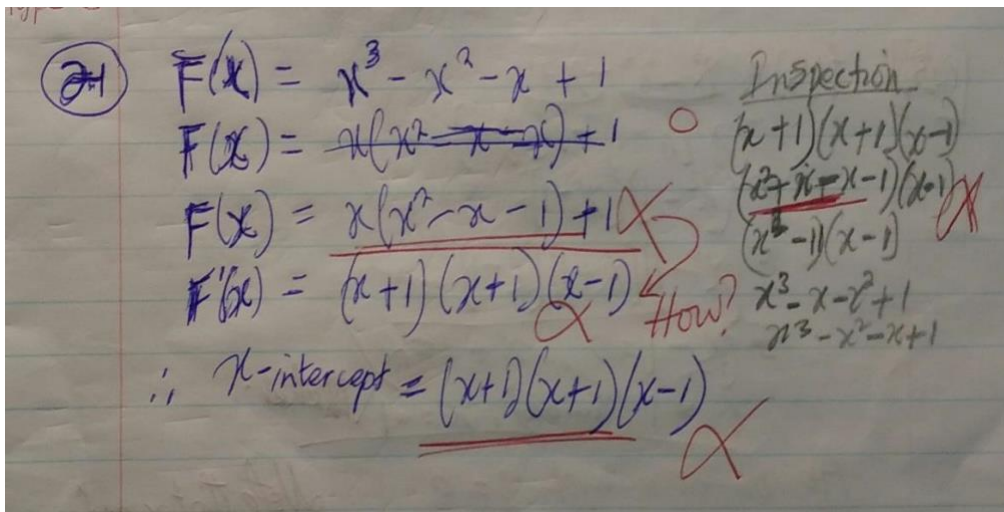 2.1
F(x) = x³ - x² - x + 1
F(x) = x(x² - x - x) + 1
F(x) = x(x² - x - 1) + 1
F'(x) = (x+1)(x+1)(x-1)
How?
∴ x-intercept = (x+1)(x+1)(x-1)
Inspection
(x+1)(x+1)(x-1)
(x²+x-x-1)(x-1)
(x²-1)(x-1)
x³-x-x²+1
x³-x²-x+1